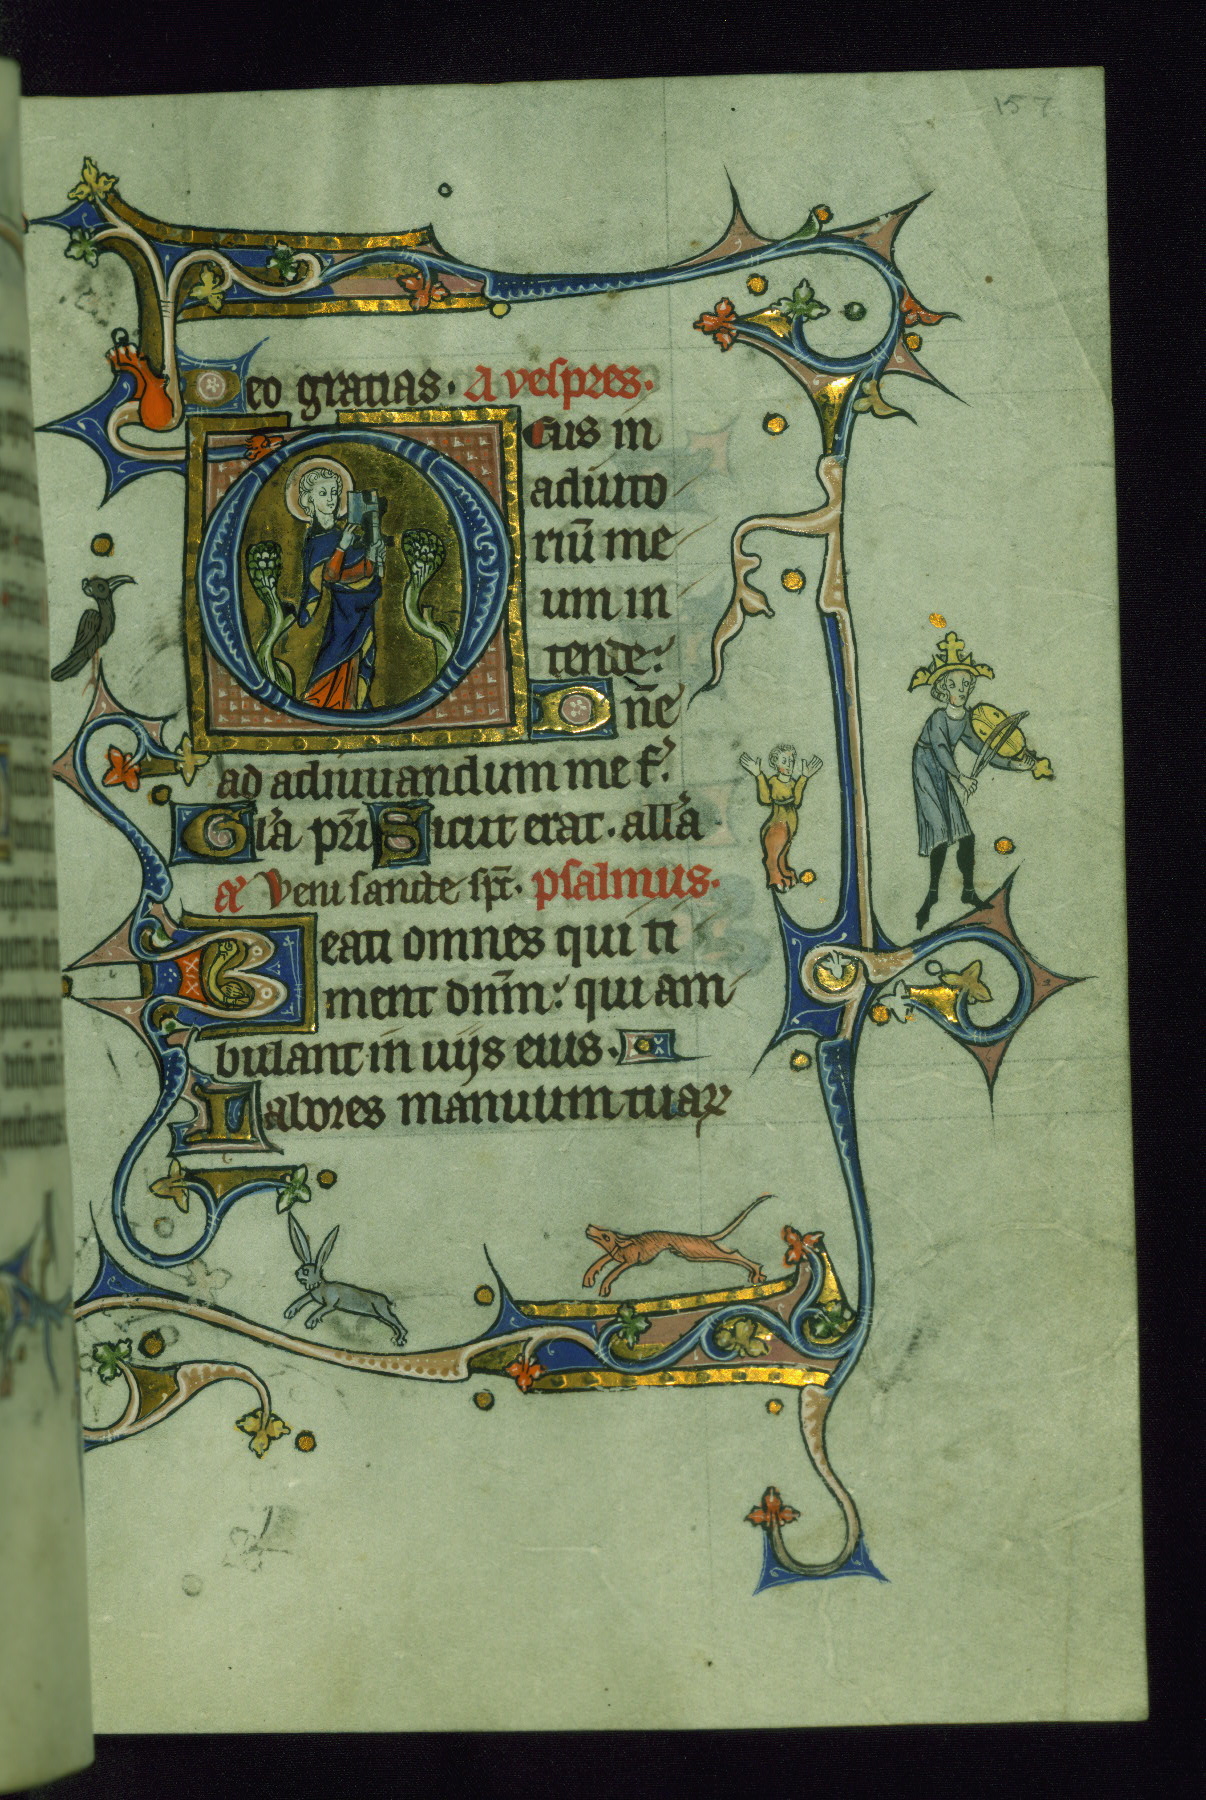 157
Deo gratias. A vespres.
Deus in
adiuto
riū me
um in
tende:
Dn̄e
ad adiuuandum me f.
Gl'a pr̄i Sicut erat. all'a
Veni sancte spc̄. psalmus.
Beati omnes qui ti
ment dnm̄: qui am
bulant in uijs eius.
Labores manuum tuaꝝ